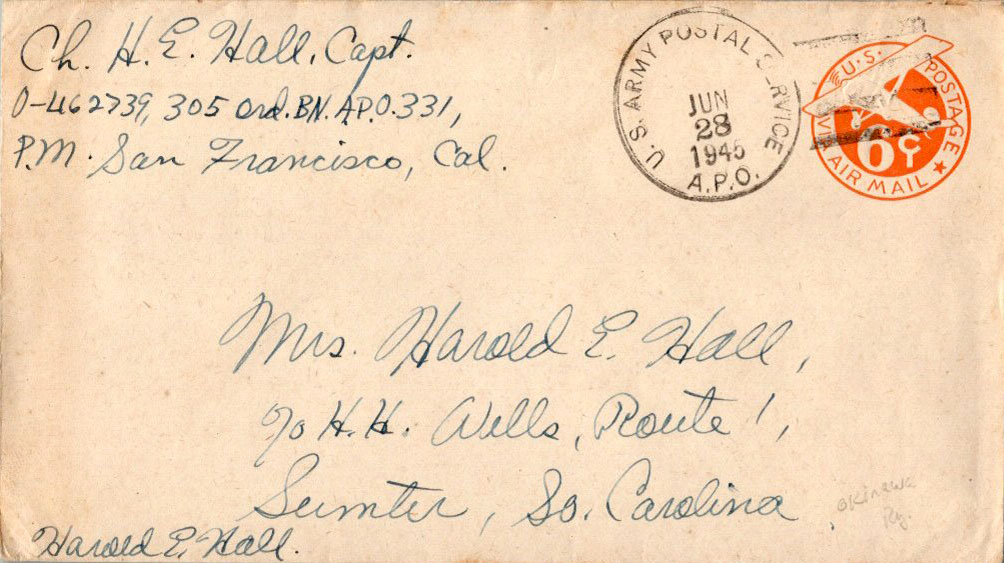 Ch. H. E. Hall, Capt.
O-462739, 305 Ord. BN. A.P.O. 331,
P.M. San Francisco, Cal.
U.S. ARMY POSTAL SERVICE
JUN
28
1945
A.P.O.
U.S. POSTAGE
6¢
VIA AIR MAIL
Mrs. Harold E. Hall,
c/o H.H. Wells, Route 1,
Sumter, So. Carolina
Okinawa
Harold E. Hall.